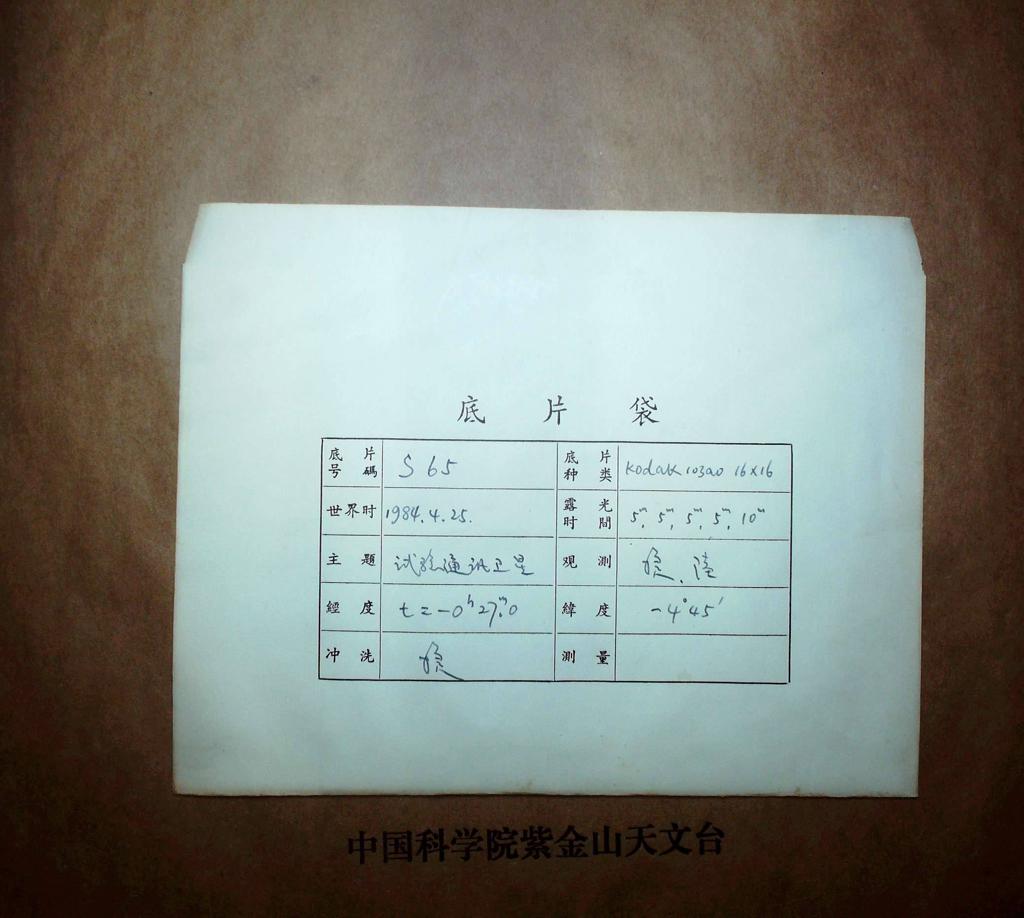 底片袋
底片号碼 S 65 底片种类 Kodak 103aO 16×16
世界时 1984.4.25. 露光时間 5ᵐ, 5ᵐ, 5ᵐ, 5ᵐ, 10ᵐ
主題 试验通讯卫星 观測
經度 t=-0ʰ27ᵐ.0 緯度 -4°45′
冲洗 測量
中国科学院紫金山天文台